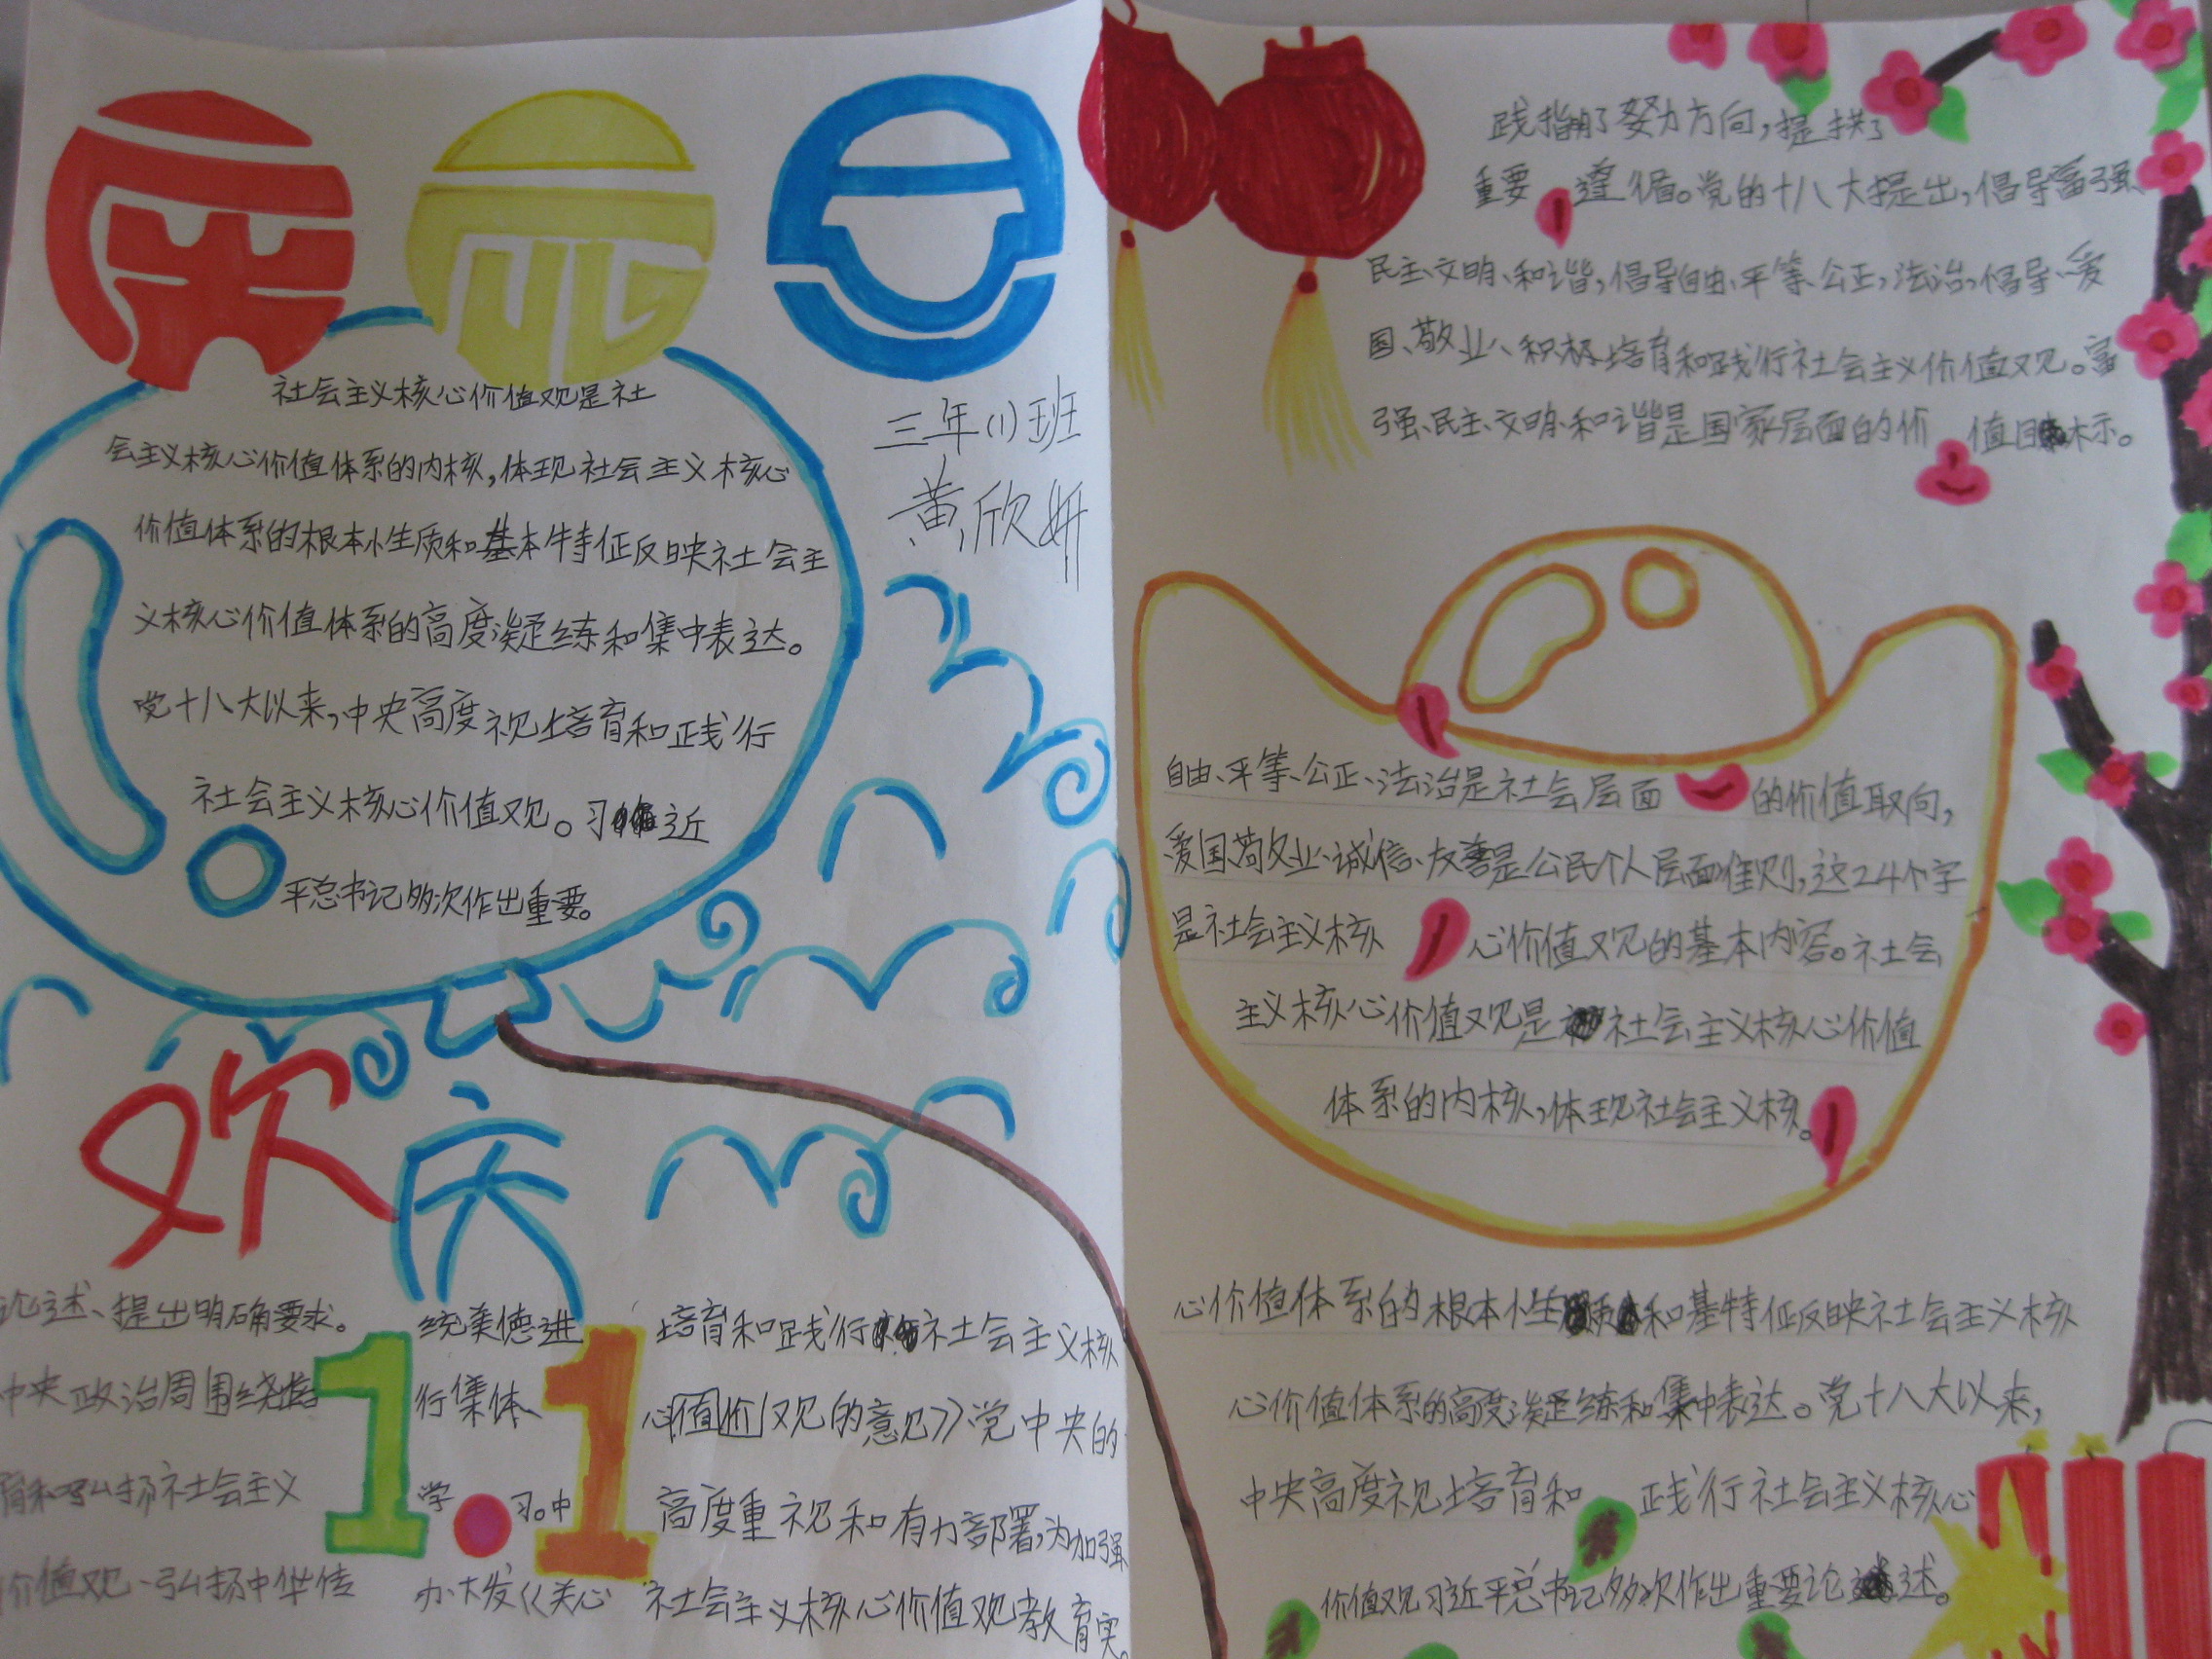 庆元旦
三年(1)班
黄欣妍
社会主义核心价值观是社
会主义核心价值体系的内核,体现社会主义核心
价值体系的根本性质和基本特征反映社会主
义核心价值体系的高度凝练和集中表达。
党十八大以来,中央高度视培育和践行
社会主义核心价值观。习近
平总书记多次作出重要。
欢庆
1.1
论述、提出明确要求。
中央政治周围绕
育和弘扬社会主义
价值观、弘扬中华传
统美德进
行集体、
学习。中
办大发《关心
培育和践行社会主义核
心值价观的意见》党中央的
高度重视和有力部署,为加强
社会主义核心价值观教育实。
践指明了努力方向,提拱了
重要遵循。党的十八大提出,倡导富强、
民主、文明、和谐,倡导自由、平等、公正,法治,倡导、爱
国、敬业、积极培育和践行社会主义价值观。富
强、民主、文明、和谐是国家层面的价值目标。
自由、平等、公正、法治是社会层面的价值取向,
爱国敬业、诚信、友善是公民个人层面准则,这24个字
是社会主义核心价值观的基本内容。社会
主义核心价值观是社会主义核心价值
体系的内核,体现社会主义核。
心价值体系的根本性质和基特征反映社会主义核
心价值体系的高度凝练和集中表达。党十八大以来,
中央高度视培育和践行社会主义核心
价值观习近平总书记多次作出重要论述。